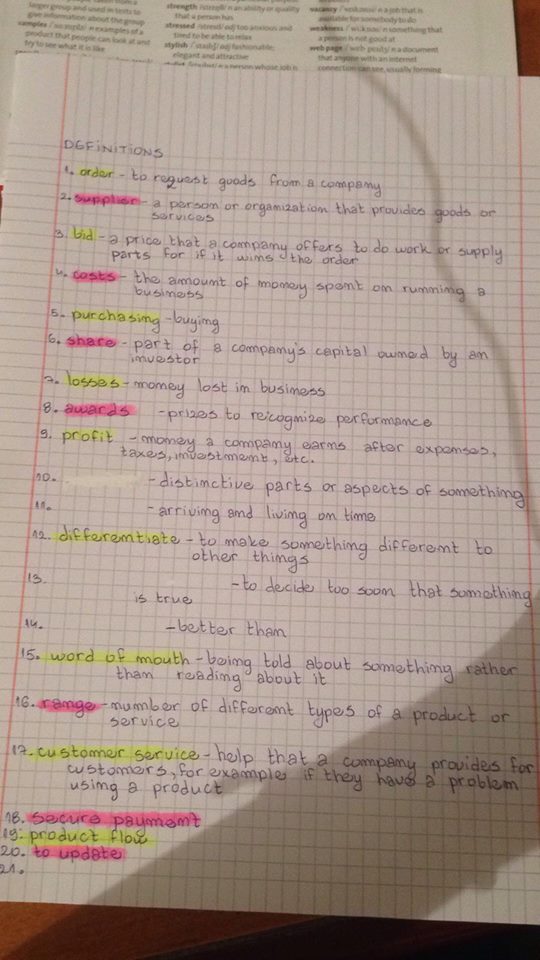 larger group and used in tests to
give information about the group
samples n examples of a
product that people can look at and
try to see what it is like
strength n an ability or quality
that a person has
stressed adj too anxious and
tired to be able to relax
stylish adj fashionable;
elegant and attractive
n a person whose job is
vacancy n a job that is
available for somebody to do
weakness n something that
a person is not good at
web page n a document
that anyone with an internet
connection can see, usually forming
DEFINITIONS
1. order - to request goods from a company
2. supplier - a person or organization that provides goods or
services
3. bid - a price that a company offers to do work or supply
parts for if it wins the order
4. costs - the amount of money spent on running a
business
5. purchasing - buying
6. share - part of a company's capital owned by an
investor
7. losses - money lost in business
8. awards - prizes to reicognize performance
9. profit - money a company earns after expenses,
taxes, investment, etc.
10. - distinctive parts or aspects of something
11. - arriving and living on time
12. differentiate - to make something different to
other things
13. - to decide too soon that something
is true
14. - better than
15. word of mouth - being told about something rather
than reading about it
16. range - number of different types of a product or
service
17. customer service - help that a company provides for
customers, for example if they have a problem
using a product
18. secure payment
19. product flow
20. to update
21.